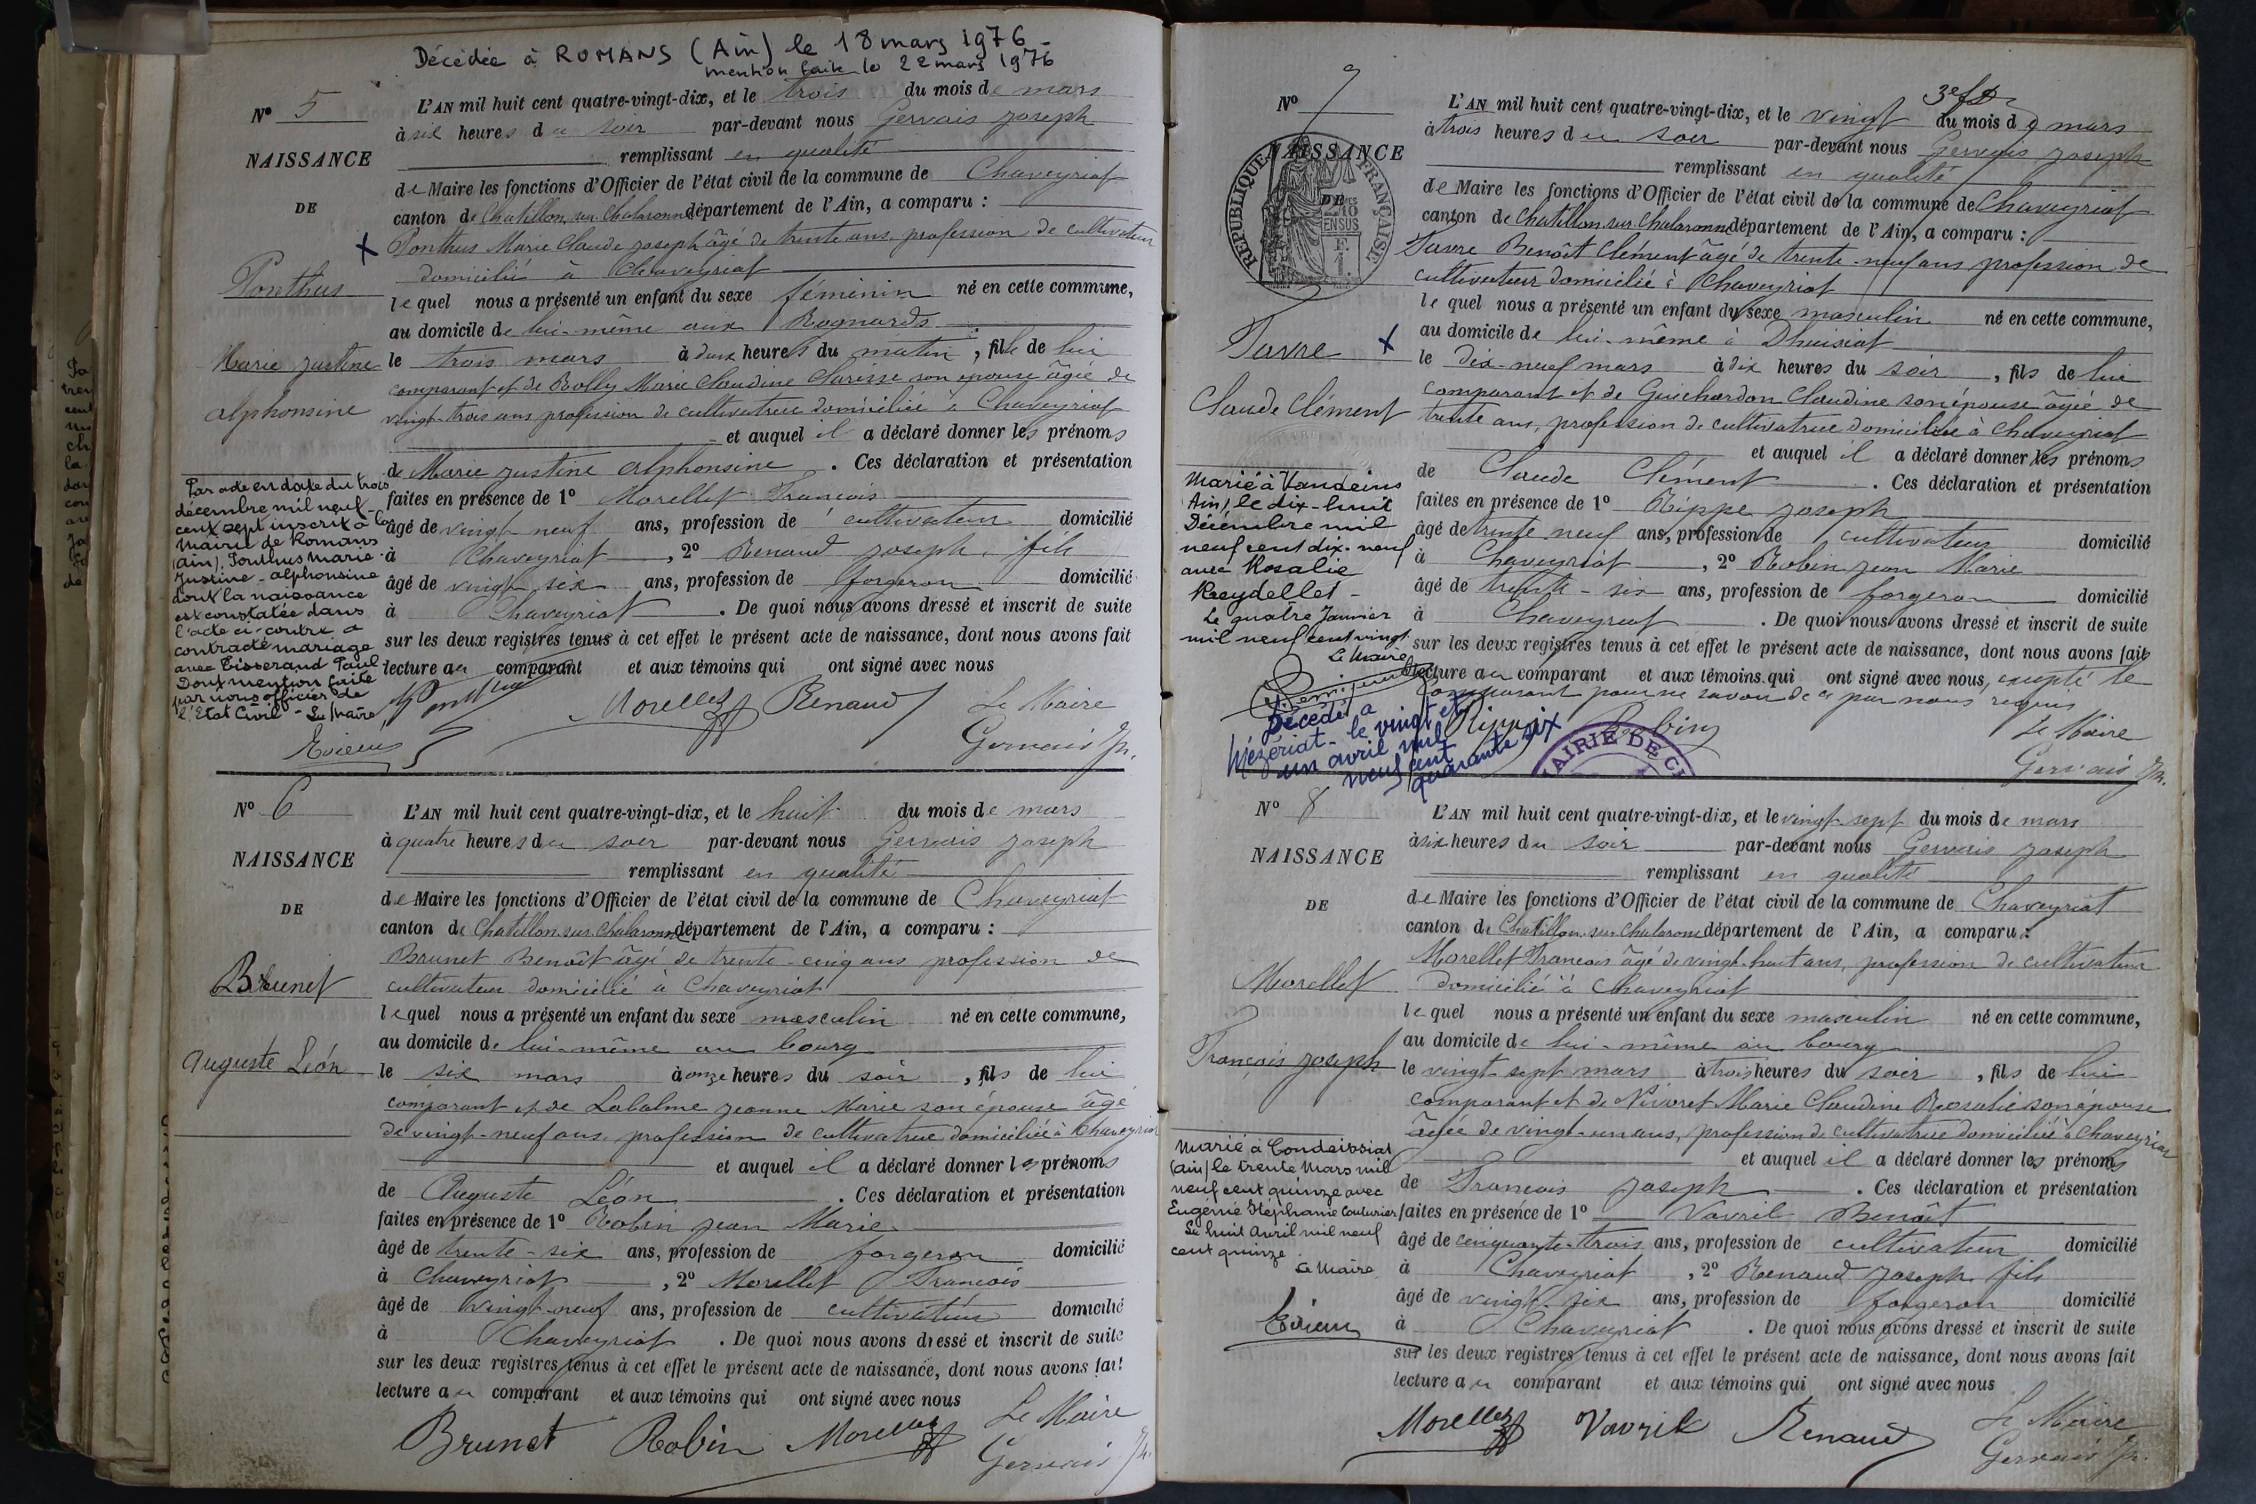 Décédée à ROMANS (Ain) le 18 mars 1976
mention faite le 22 mars 1976
N° 5
NAISSANCE
DE
Ponthus
Marie Justine
Alphonsine
L'AN mil huit cent quatre-vingt-dix, et le trois du mois de mars
à six heures du soir par-devant nous Gervais Joseph
remplissant en qualité
de Maire les fonctions d'Officier de l'état civil de la commune de Chaveyriat
canton de Chatillon sur Chalaronne département de l'Ain, a comparu :
Ponthus Marie Claude Joseph âgé de trente ans profession de cultivateur
domicilié à Chaveyriat
lequel nous a présenté un enfant du sexe féminin né en cette commune,
au domicile de lui-même aux Rognards
le trois mars à deux heures du matin, fille de lui
comparant et de Bolly Marie Claudine Clarisse son épouse âgée de
vingt-trois ans profession de cultivatrice domiciliée à Chaveyriat
et auquel il a déclaré donner les prénoms
de Marie Justine Alphonsine. Ces déclaration et présentation
faites en présence de 1° Morellet François
âgé de vingt-neuf ans, profession de cultivateur domicilié
à Chaveyriat, 2° Renaud Joseph, fils
âgé de vingt-six ans, profession de forgeron domicilié
à Chaveyriat. De quoi nous avons dressé et inscrit de suite
sur les deux registres tenus à cet effet le présent acte de naissance, dont nous avons fait
lecture au comparant et aux témoins qui ont signé avec nous
Morellet Renaud Le Maire
Gervais Jh.
Par acte en date du trois
décembre mil neuf
cent sept inscrit à la
Mairie de Romans
(Ain), Ponthus Marie
Justine-Alphonsine
dont la naissance
est constatée dans
l'acte ci-contre a
contracté mariage
avec Tisserand Paul
Dont mention faite
par nous officier de
l'Etat Civil - Le Maire
N° 6
NAISSANCE
DE
Brunet
Auguste Léon
L'AN mil huit cent quatre-vingt-dix, et le huit du mois de mars
à quatre heures du soir par-devant nous Gervais Joseph
remplissant en qualité
de Maire les fonctions d'Officier de l'état civil de la commune de Chaveyriat
canton de Chatillon sur Chalaronne département de l'Ain, a comparu :
Brunet Benoît âgé de trente-cinq ans profession de
cultivateur domicilié à Chaveyriat
lequel nous a présenté un enfant du sexe masculin né en cette commune,
au domicile de lui-même au bourg
le six mars à onze heures du soir, fils de lui
comparant et de Labalme Jeanne Marie son épouse âgé
de vingt-neuf ans, profession de cultivatrice domiciliée à Chaveyriat
et auquel il a déclaré donner les prénoms
de Auguste Léon. Ces déclaration et présentation
faites en présence de 1° Robin Jean Marie
âgé de trente-six ans, profession de forgeron domicilié
à Chaveyriat, 2° Morellet François
âgé de vingt-neuf ans, profession de cultivateur domicilié
à Chaveyriat. De quoi nous avons dressé et inscrit de suite
sur les deux registres tenus à cet effet le présent acte de naissance, dont nous avons fait
lecture au comparant et aux témoins qui ont signé avec nous
Brunet Robin Morellet Le Maire
Gervais Jh.
N° 7
NAISSANCE
DE
RÉPUBLIQUE FRANÇAISE
Favre
Claude Clément
L'AN mil huit cent quatre-vingt-dix, et le vingt du mois de mars
à trois heures du soir par-devant nous Gervais Joseph
remplissant en qualité
de Maire les fonctions d'Officier de l'état civil de la commune de Chaveyriat
canton de Chatillon sur Chalaronne département de l'Ain, a comparu :
Favre Benoît Clément âgé de trente-neuf ans profession de
cultivateur domicilié à Chaveyriat
lequel nous a présenté un enfant du sexe masculin né en cette commune,
au domicile de lui-même à Dhuisiat
le dix-neuf mars à dix heures du soir, fils de lui
comparant et de Guichardon Claudine son épouse âgée de
trente ans, profession de cultivatrice domiciliée à Chaveyriat
et auquel il a déclaré donner les prénoms
de Claude Clément. Ces déclaration et présentation
faites en présence de 1° Rippe Joseph
âgé de trente neuf ans, profession de cultivateur domicilié
à Chaveyriat, 2° Robin Jean Marie
âgé de trente-six ans, profession de forgeron domicilié
à Chaveyriat. De quoi nous avons dressé et inscrit de suite
sur les deux registres tenus à cet effet le présent acte de naissance, dont nous avons fait
lecture au comparant et aux témoins qui ont signé avec nous, excepté le
comparant pour ne savoir de ce par nous requis
Rippe Robin Le Maire
Gervais Jh.
MAIRIE DE
Marié à Vandeins
(Ain), le dix-huit
Décembre mil
neuf cent dix-neuf
avec Rosalie
Reydellet -
Le quatre Janvier
mil neuf cent vingt
Le Maire
Décédé à
Mézériat - le vingt et
un avril mil
neuf cent
quarante six
N° 8
NAISSANCE
DE
Morellet
François Joseph
L'AN mil huit cent quatre-vingt-dix, et le vingt-sept du mois de mars
à six heures du soir par-devant nous Gervais Joseph
remplissant en qualité
de Maire les fonctions d'Officier de l'état civil de la commune de Chaveyriat
canton de Chatillon sur Chalaronne département de l'Ain, a comparu :
Morellet François âgé de vingt-huit ans, profession de cultivateur
domicilié à Chaveyriat
lequel nous a présenté un enfant du sexe masculin né en cette commune,
au domicile de lui-même au bourg
le vingt-sept mars à trois heures du soir, fils de lui
comparant et de Nivoret Marie Claudine Rosalie son épouse
âgée de vingt-un ans, profession de cultivatrice domiciliée à Chaveyriat
et auquel il a déclaré donner les prénoms
de François Joseph. Ces déclaration et présentation
faites en présence de 1° Vavril Benoît
âgé de cinquante-trois ans, profession de cultivateur domicilié
à Chaveyriat, 2° Renaud Joseph fils
âgé de vingt-six ans, profession de forgeron domicilié
à Chaveyriat. De quoi nous avons dressé et inscrit de suite
sur les deux registres tenus à cet effet le présent acte de naissance, dont nous avons fait
lecture au comparant et aux témoins qui ont signé avec nous
Morellet Vavril Renaud Le Maire
Gervais Jh.
Marié à Condeissiat
(Ain) le trente Mars mil
neuf cent quinze avec
Eugénie Stéphanie Couturier
Le huit Avril mil neuf
cent quinze
Le Maire